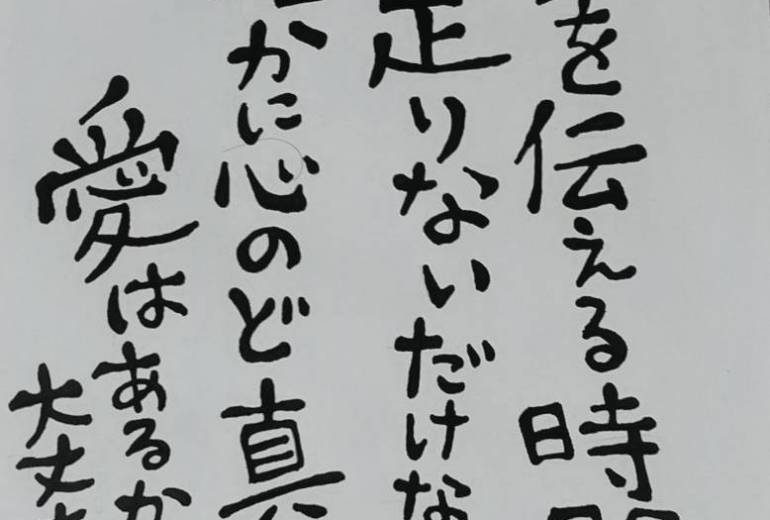 を伝える時間
足りないだけな
かに心のど真
愛はあるか
大丈